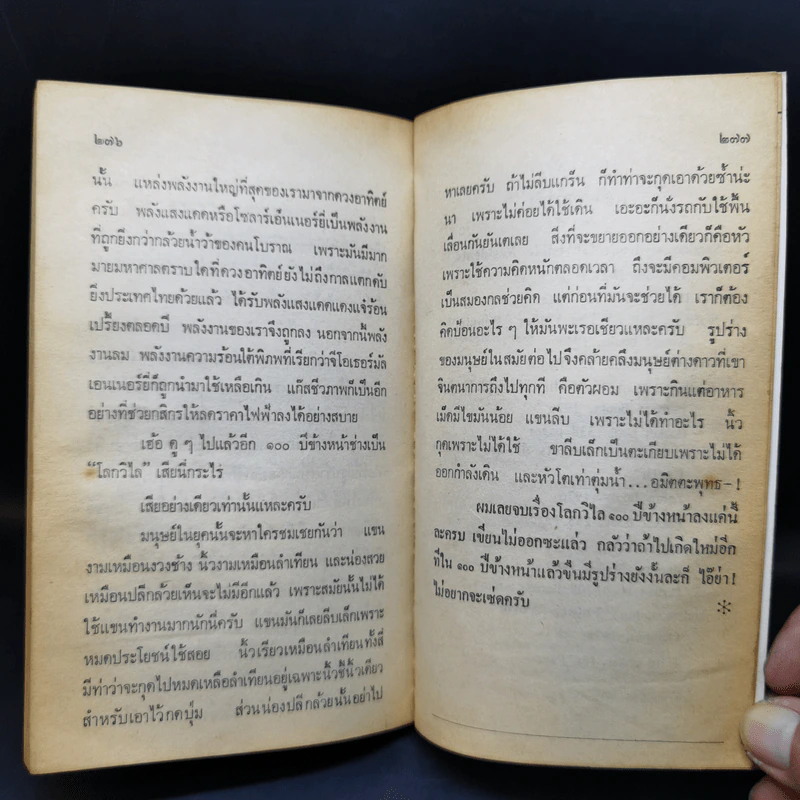 ๒๗๖
นั้น แหล่งพลังงานใหญ่ที่สุดของเรามาจากดวงอาทิตย์
ครับ พลังแสงแดดหรือโซลาร์เอ็นเนอร์ยี่เป็นพลังงาน
ที่ถูกยิ่งกว่ากล้วยน้ำว้าของคนโบราณ เพราะมันมีมาก
มายมหาศาลตราบใดที่ดวงอาทิตย์ยังไม่ถึงกาลแตกดับ
ยิ่งประเทศไทยด้วยแล้ว ได้รับพลังแสงแดดแดงแจ๋ร้อน
เปรี้ยงตลอดปี พลังงานของเราจึงถูกลง นอกจากนี้พลัง
งานลม พลังงานความร้อนใต้พิภพที่เรียกว่าจีโอเธอร์มัล
เอนเนอร์ยี่ก็ถูกนำมาใช้เหลือเกิน แก๊สชีวภาพก็เป็นอีก
อย่างที่ช่วยกสิกรให้ลดราคาไฟฟ้าลงได้อย่างสบาย
เฮ้อ ดู ๆ ไปแล้วอีก ๑๐๐ ปีข้างหน้าช่างเป็น
“โลกวิไล” เสียนี่กระไร
เสียอย่างเดียวเท่านั้นแหละครับ
มนุษย์ในยุคนั้นจะหาใครชมเชยกันว่า แขน
งามเหมือนงวงช้าง นิ้วงามเหมือนลำเทียน และน่องสวย
เหมือนปลีกล้วยเห็นจะไม่มีอีกแล้ว เพราะสมัยนั้นไม่ได้
ใช้แขนทำงานมากนักนี่ครับ แขนมันก็เลยลีบเล็กเพราะ
หมดประโยชน์ใช้สอย นิ้วเรียวเหมือนลำเทียนทั้งสี่
มีท่าว่าจะกุดไปหมดเหลือลำเทียนอยู่เฉพาะนิ้วชี้นิ้วเดียว
สำหรับเอาไว้กดปุ่ม ส่วนน่องปลีกล้วยนั้นอย่าไป
๒๗๗
หาเลยครับ ถ้าไม่ลีบแกร็น ก็ทำท่าจะกุดเอาด้วยซ้ำน่ะ
นา เพราะไม่ค่อยได้ใช้เดิน เอะอะก็นั่งรถกับใช้พื้น
เลื่อนกันยันเตเลย สิ่งที่จะขยายออกอย่างเดียวก็คือหัว
เพราะใช้ความคิดหนักตลอดเวลา ถึงจะมีคอมพิวเตอร์
เป็นสมองกลช่วยคิด แต่ก่อนที่มันจะช่วยได้ เราก็ต้อง
คิดป้อนอะไร ๆ ให้มันพะเรอเชียวแหละครับ รูปร่าง
ของมนุษย์ในสมัยต่อไปจึงคล้ายคลึงมนุษย์ต่างดาวที่เขา
จินตนาการถึงไปทุกที คือตัวผอม เพราะกินแต่อาหาร
เม็ดมีไขมันน้อย แขนลีบ เพราะไม่ได้ทำอะไร นิ้ว
กุดเพราะไม่ได้ใช้ ขาลีบเล็กเป็นตะเกียบเพราะไม่ได้
ออกกำลังเดิน และหัวโตเท่าตุ่มน้ำ...อมิตตะพุทธ-!
ผมเลยจบเรื่องโลกวิไล ๑๐๐ ปีข้างหน้าลงแค่นี้
ละครบ เขียนไม่ออกซะแล้ว กลัวว่าถ้าไปเกิดใหม่อีก
ทีใน ๑๐๐ ปีข้างหน้าแล้วขืนมีรูปร่างยังงั้นละก็ ไอ๊ย่า!
ไม่อยากจะเซ่ดครับ
*